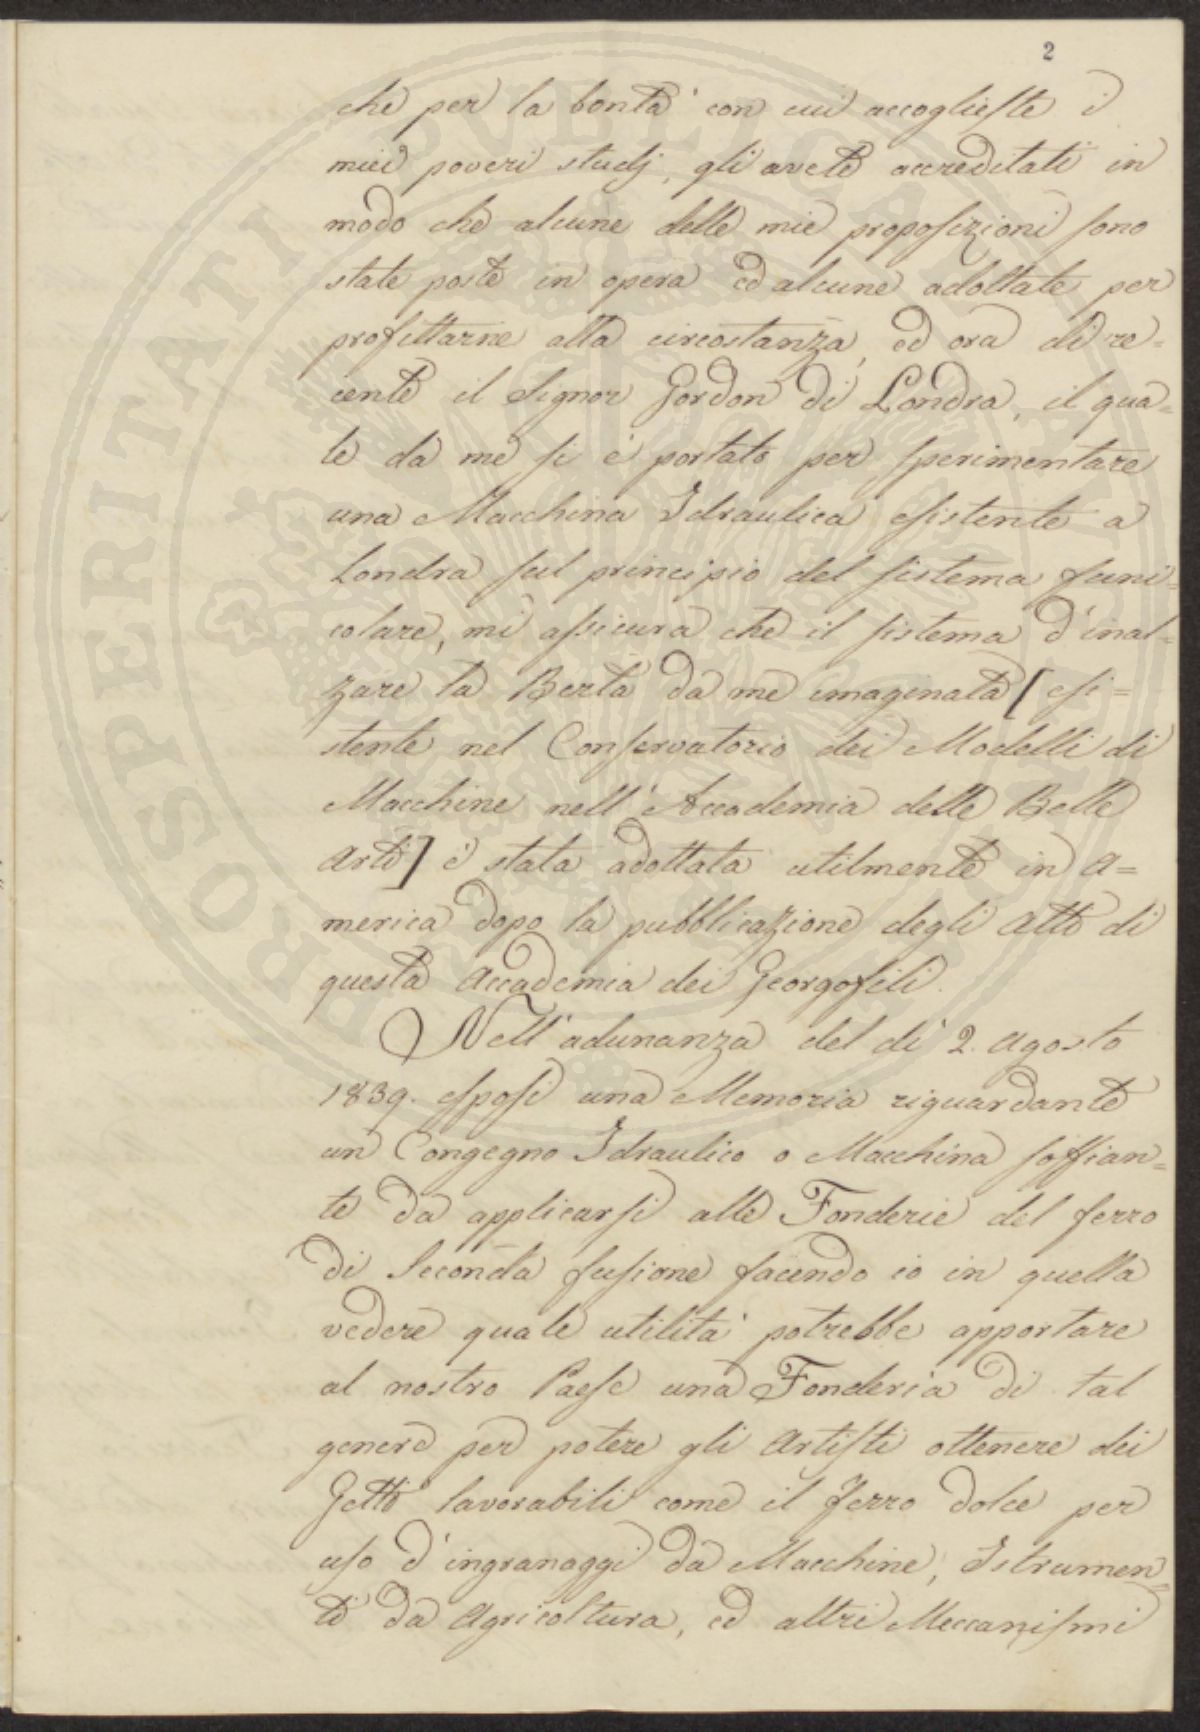 2
che per la bontà con cui accoglieste i
miei poveri studj, gli avete accreditati in
modo che alcune delle mie proposizioni sono
state poste in opera ed alcune adottate per
profittarne alla circostanza, ed ora di re=
cente il Signor Gordon di Londra, il qua=
le da me si è portato per sperimentare
una Macchina Idraulica esistente a
Londra sul principio del sistema funi=
colare, mi assicura che il sistema d'inal=
zare la Berta da me imaginata [esi=
stente nel Conservatorio dei Modelli di
Macchine nell'Accademia delle Belle
Arti] è stata adottata utilmente in A=
merica dopo la pubblicazione degli Atti di
questa Accademia dei Georgofili.
Nell'adunanza del dì 2. Agosto
1839. esposi una Memoria riguardante
un Congegno Idraulico o Macchina soffian=
te da applicarsi alle Fonderie del ferro
di Seconda fusione facendo io in quella
vedere quale utilità potrebbe apportare
al nostro Paese una Fonderia di tal
genere per potere gli Artisti ottenere dei
Getti lavorabili come il Ferro dolce per
uso d'ingranaggi da Macchine, Istrumen=
ti da Agricoltura, ed altri Meccanismi
PROSPERITATI PUBLICAE AUGENDAE